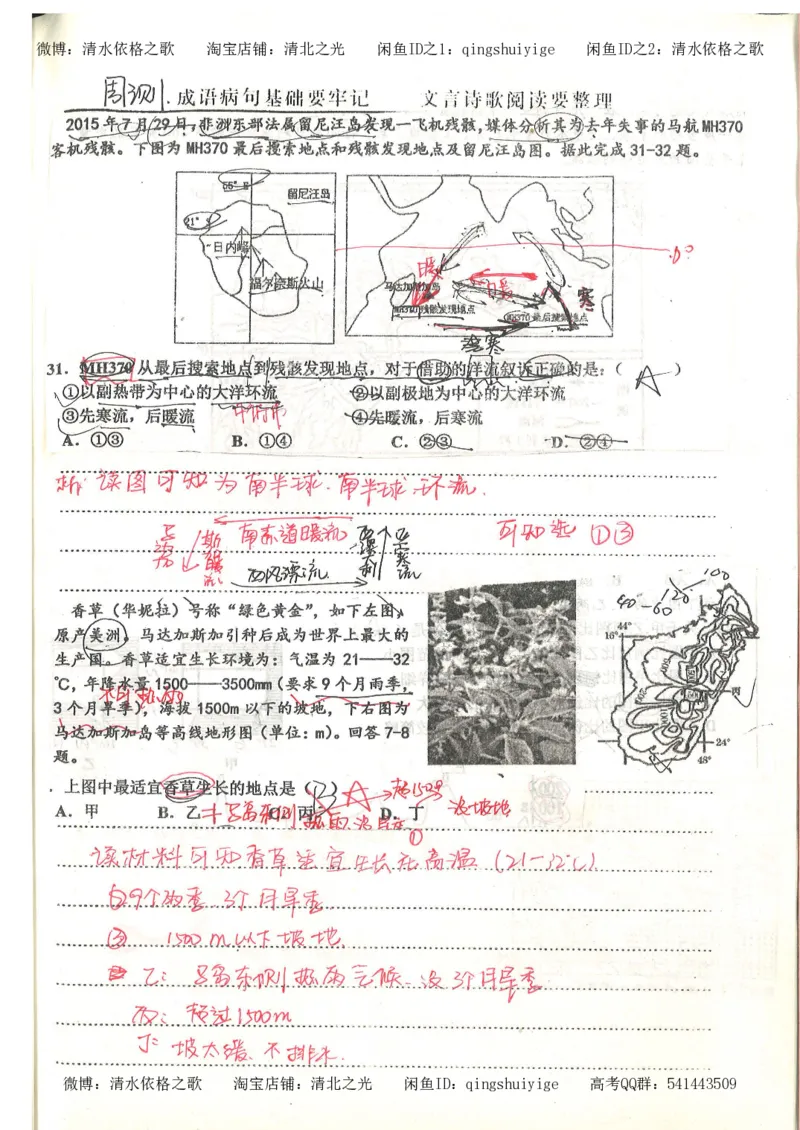 微博：清水依格之歌 淘宝店铺：清北之光 闲鱼ID之1：qingshuiyige 闲鱼ID之2：清水依格之歌
周测 . 成语病句基础要牢记 文言诗歌阅读要整理
2015年7月29日,非洲东部法属留尼汪岛发现一飞机残骸,媒体分析其为去年失事的马航MH370
客机残骸。下图为MH370最后搜索地点和残骸发现地点及留尼汪岛图。据此完成31-32题。
55° E 留尼汪岛
21° S
日内峰
福尔奈斯火山
0°
日暖
马达加斯加岛
MH370残骸发现地点
MH370最后搜索地点
寒
31. MH370从最后搜索地点到残骸发现地点,对于借助的洋流叙述正确的是:( A )
①以副热带为中心的大洋环流 ②以副极地为中心的大洋环流
③先寒流,后暖流 中南市 ④先暖流,后寒流
A. ①③ B. ①④ C. ②③ D. ②④
析 读图可知为南半球.南半球环流.
南赤道暖流 可知选①③
西风漂流
香草(华妮拉)号称“绿色黄金”,如下左图,
原产美洲,马达加斯加引种后成为世界上最大的
生产国。香草适宜生长环境为:气温为21——32
℃,年降水量1500——3500mm(要求9个月雨季,
3个月旱季),海拔1500m以下的坡地,下右图为
马达加斯加岛等高线地形图(单位:m)。回答7-8
题。
100
80 60 120
44°
16°
丙
24°
48°
. 上图中最适宜香草生长的地点是( )
A. 甲 B. 乙 C. 丙 D. 丁 没坡地
读材料可知香草适宜生长在高温 (21-32℃)
②9个雨季 3个月旱季
③ 1500m以下坡地.
乙: 岛东侧热雨气候.没3个月旱季
丙: 超过1500m
丁: 坡太缓、不排水.
微博：清水依格之歌 淘宝店铺：清北之光 闲鱼ID：qingshuiyige 高考QQ群：541443509